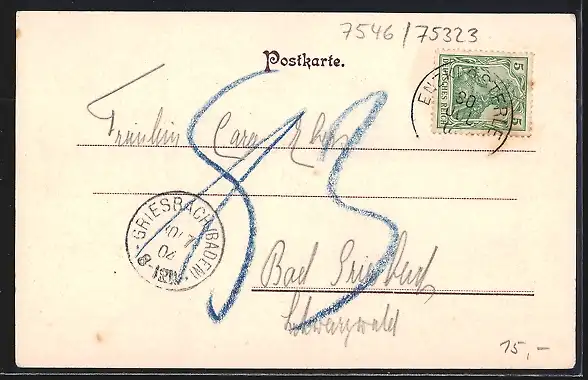 7546/75323
Postkarte.
DEUTSCHES REICH
5 5
30
Fräulein
83
GRIESBACH (BADEN)
04
Bad Griesbach
Schwarzwald
15,-